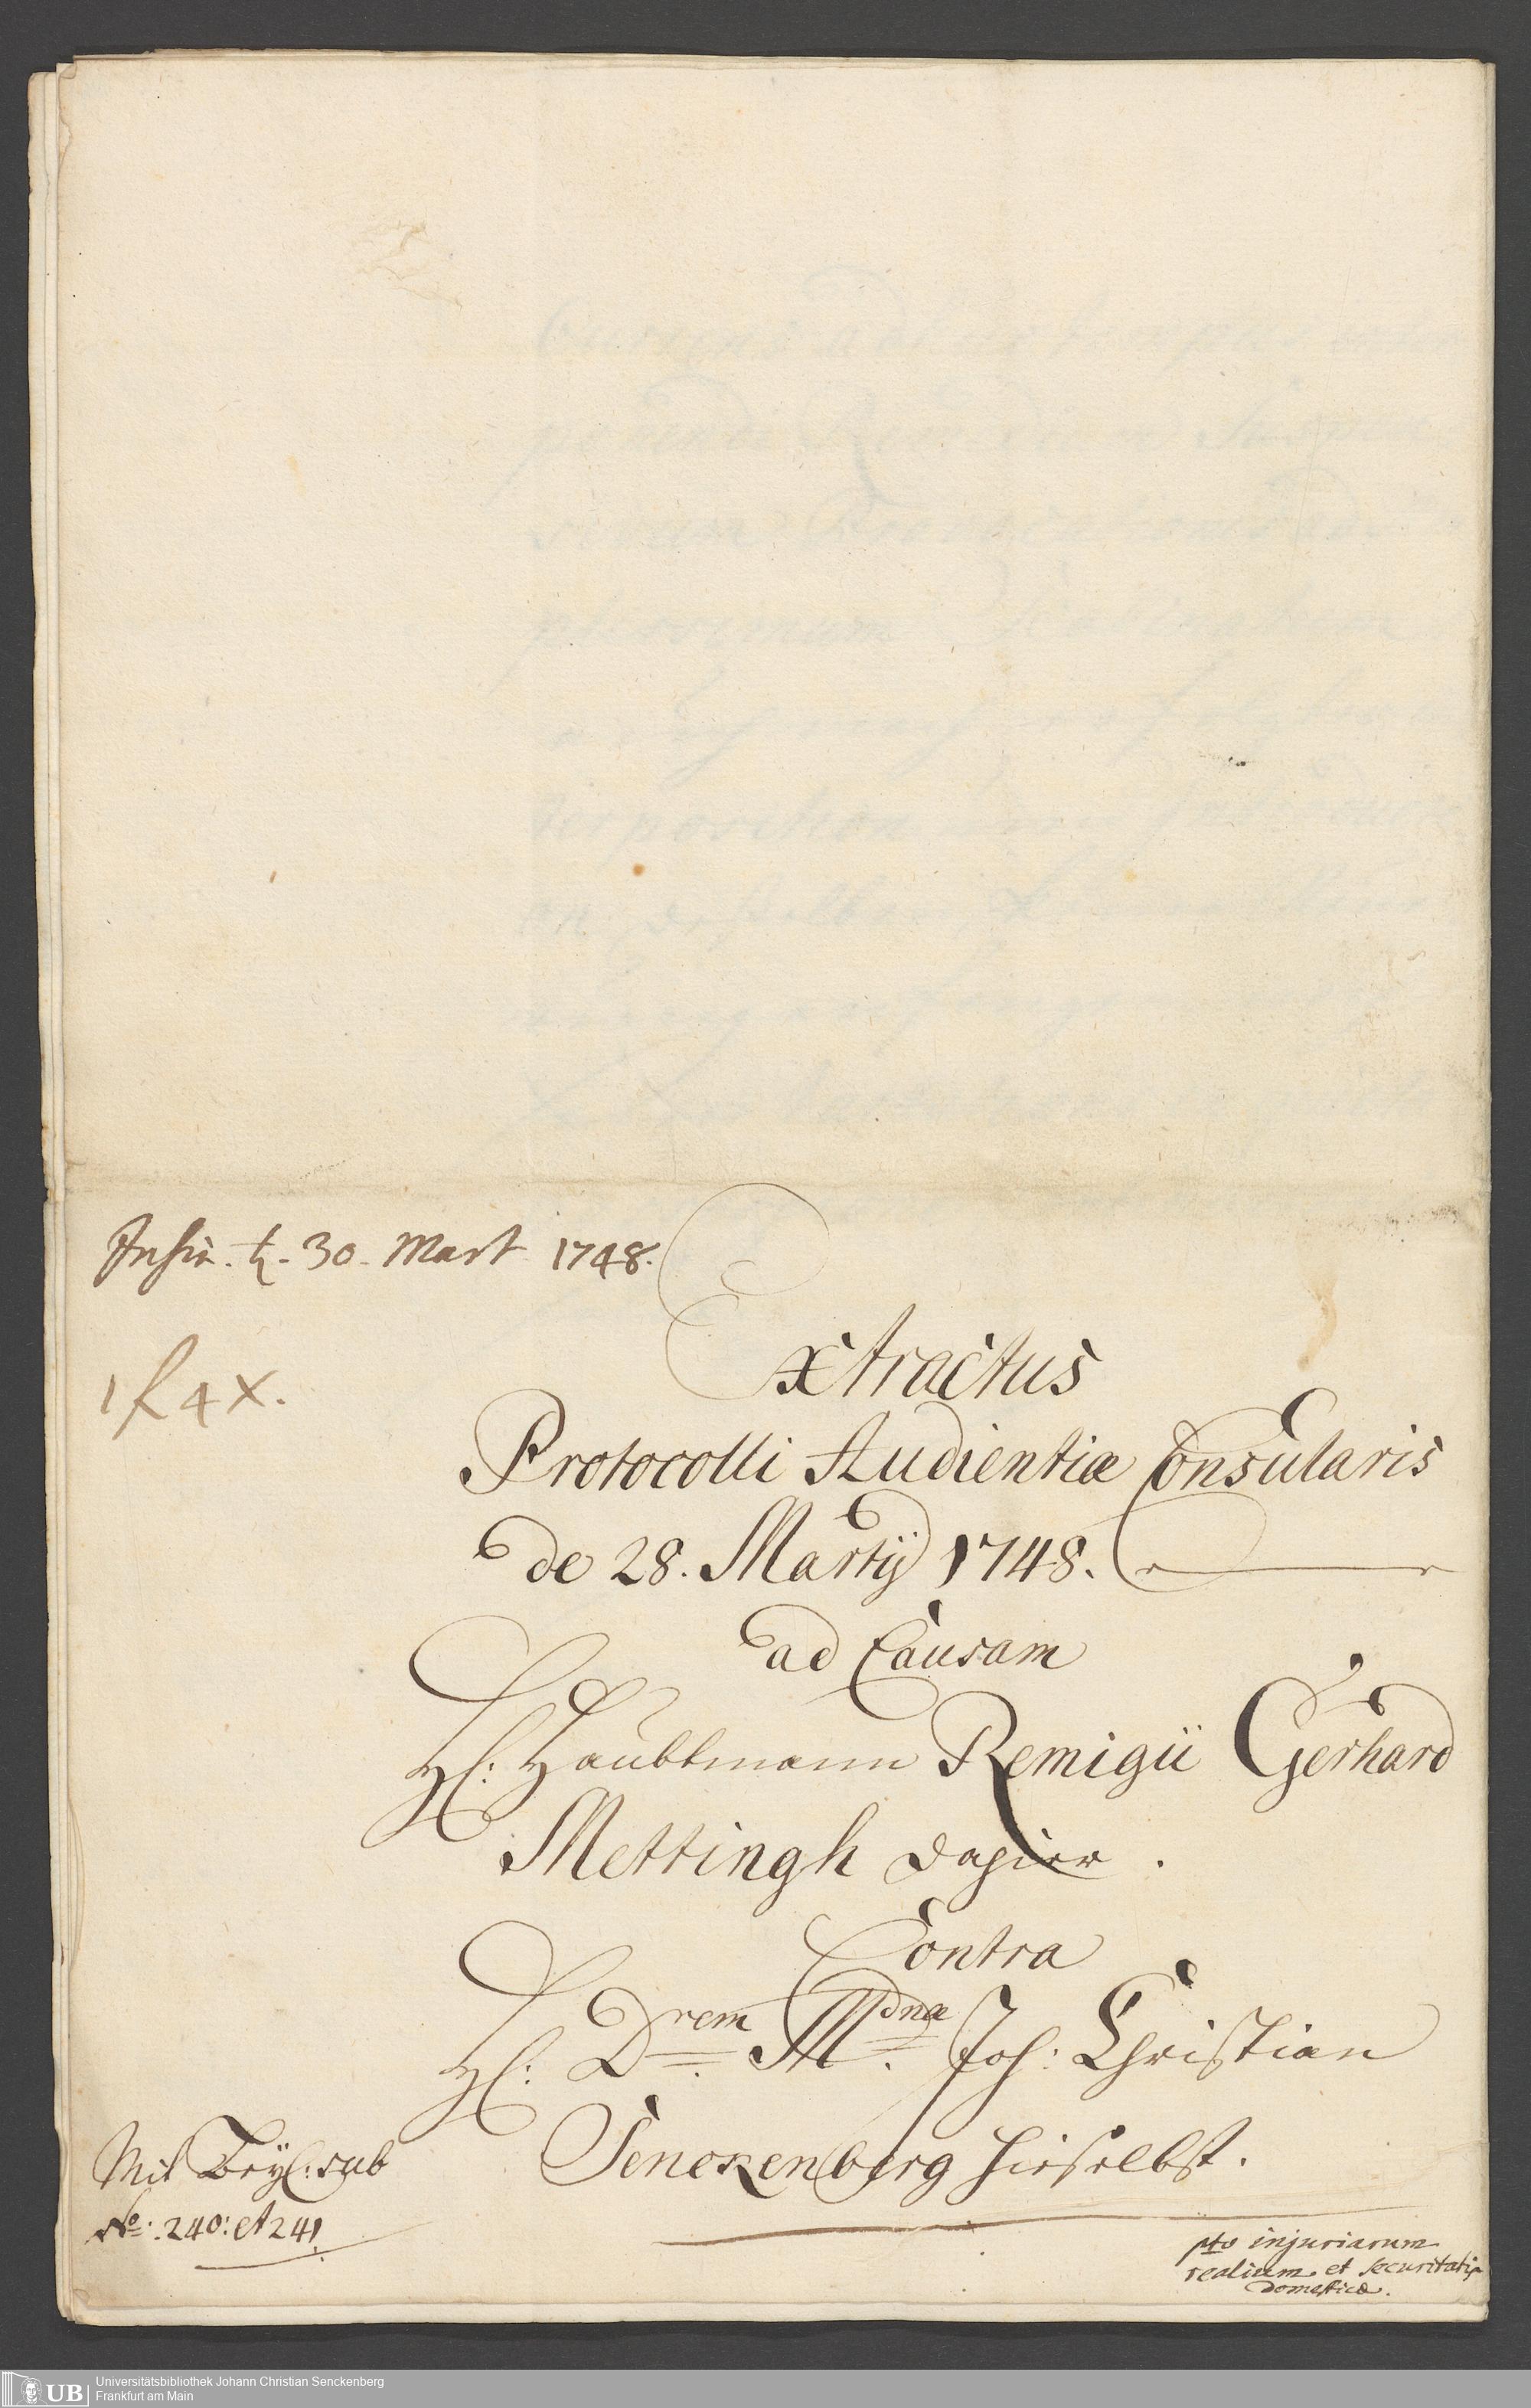 Insin. ♄. 30. Mart 1748.
1 f 4 x.
Extractus
Protocolli Audientiæ Consularis
de 28. Martij 1748.
ad Causam
H: Haubtmann Remigii Gerhard
Mettingh dahier.
Contra
H: Drem Mdnæ Joh: Christian
Senckenberg hieselbst.
Mit Beyl: sub
No: 240: et 241.
pto injuriarum
realium et securitatis
domesticæ.
UB Universitätsbibliothek Johann Christian Senckenberg
Frankfurt am Main